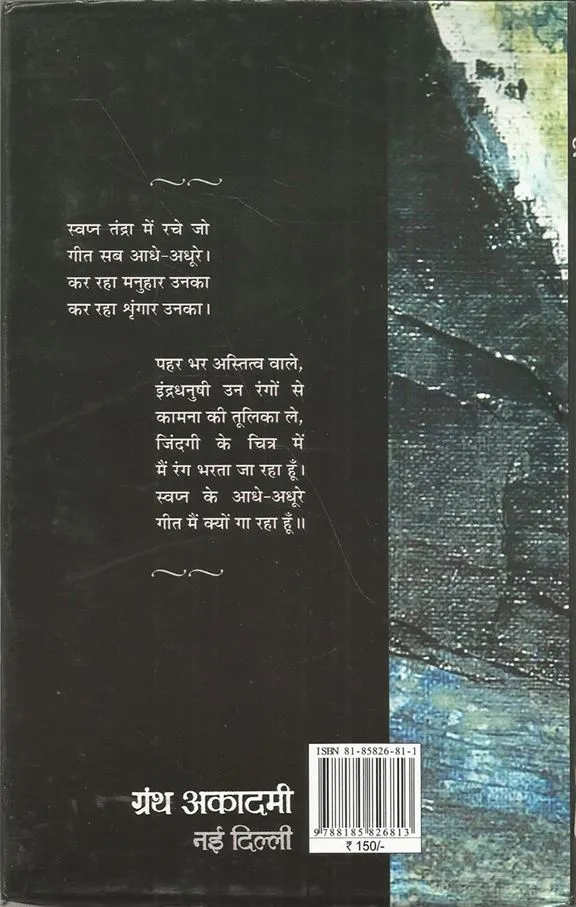 स्वप्न तंद्रा में रचे जो
गीत सब आधे-अधूरे।
कर रहा मनुहार उनका
कर रहा शृंगार उनका।
पहर भर अस्तित्व वाले,
इंद्रधनुषी उन रंगों से
कामना की तूलिका ले,
जिंदगी के चित्र में
मैं रंग भरता जा रहा हूँ।
स्वप्न के आधे-अधूरे
गीत मैं क्यों गा रहा हूँ॥
ISBN 81-85826-81-1
9 788185 826813
₹ 150/-
ग्रंथ अकादमी
नई दिल्ली